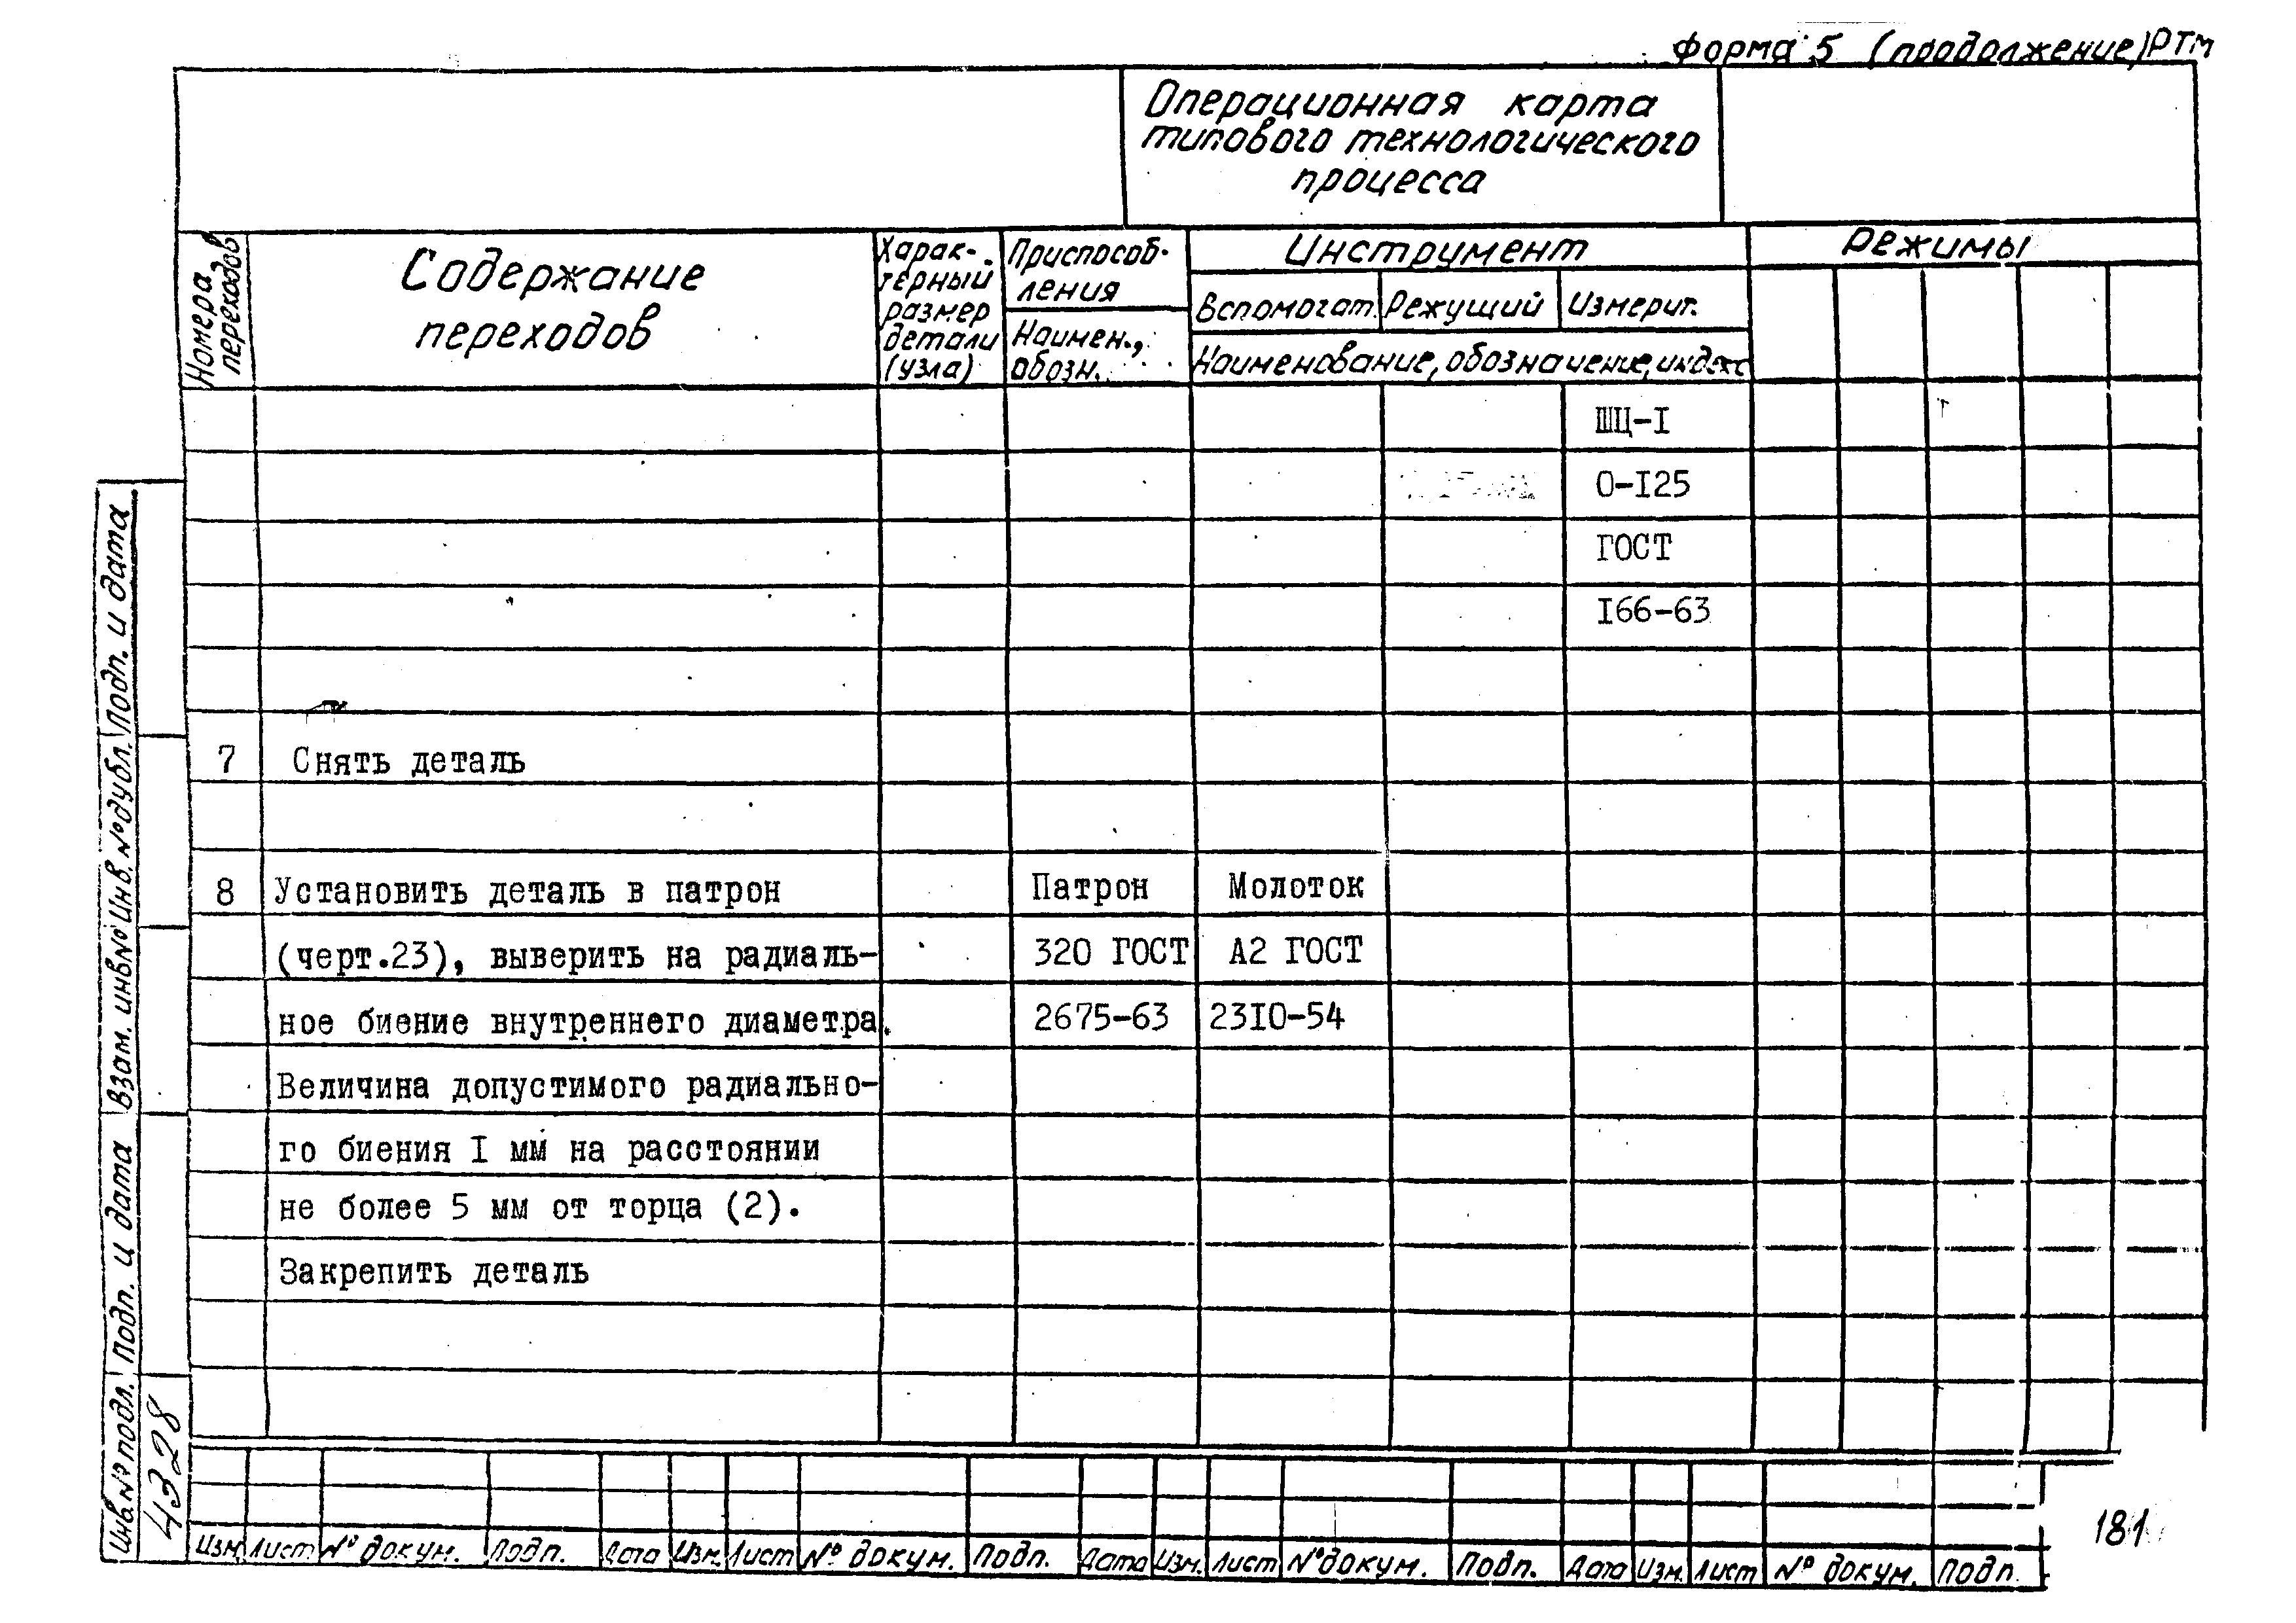 Форма 5 (продолжение) РТМ
Операционная карта
типового технологического
процесса
Номера переходов
Содержание
переходов
Харак-
терный
размер
детали
(узла)
Приспособ-
ления
Наимен.,
обозн.
Инструмент
Вспомогат. Режущий Измерит.
Наименование, обозначение, индекс
Режимы
ШЦ-I
0-I25
ГОСТ
I66-63
7 Снять деталь
8 Установить деталь в патрон Патрон Молоток
(черт.23), выверить на радиаль- 320 ГОСТ А2 ГОСТ
ное биение внутреннего диаметра. 2675-63 23I0-54
Величина допустимого радиально-
го биения I мм на расстоянии
не более 5 мм от торца (2).
Закрепить деталь
Инв.№ подл. Подп. и дата Взам. инв.№ Инв.№ дубл. Подп. и дата
4328
Изм. Лист № докум. Подп. Дата Изм. Лист № докум. Подп. Дата Изм. Лист № докум. Подп. Дата Изм. Лист № докум. Подп.
181